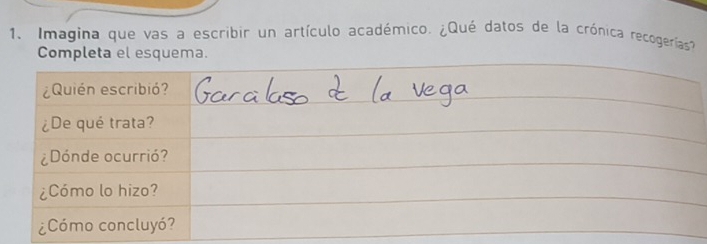 1. Imagina que vas a escribir un artículo académico. ¿Qué datos de la crónica recogerías?
Completa el esquema.
¿Quién escribió? Garcilaso de la Vega
¿De qué trata?
¿Dónde ocurrió?
¿Cómo lo hizo?
¿Cómo concluyó?